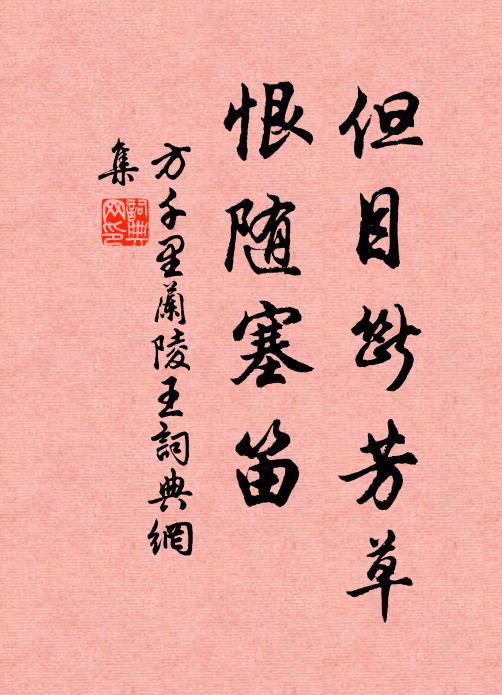 但目断芳草
恨随塞笛
方千里蘭陵王詞典網
集
詞典
网印